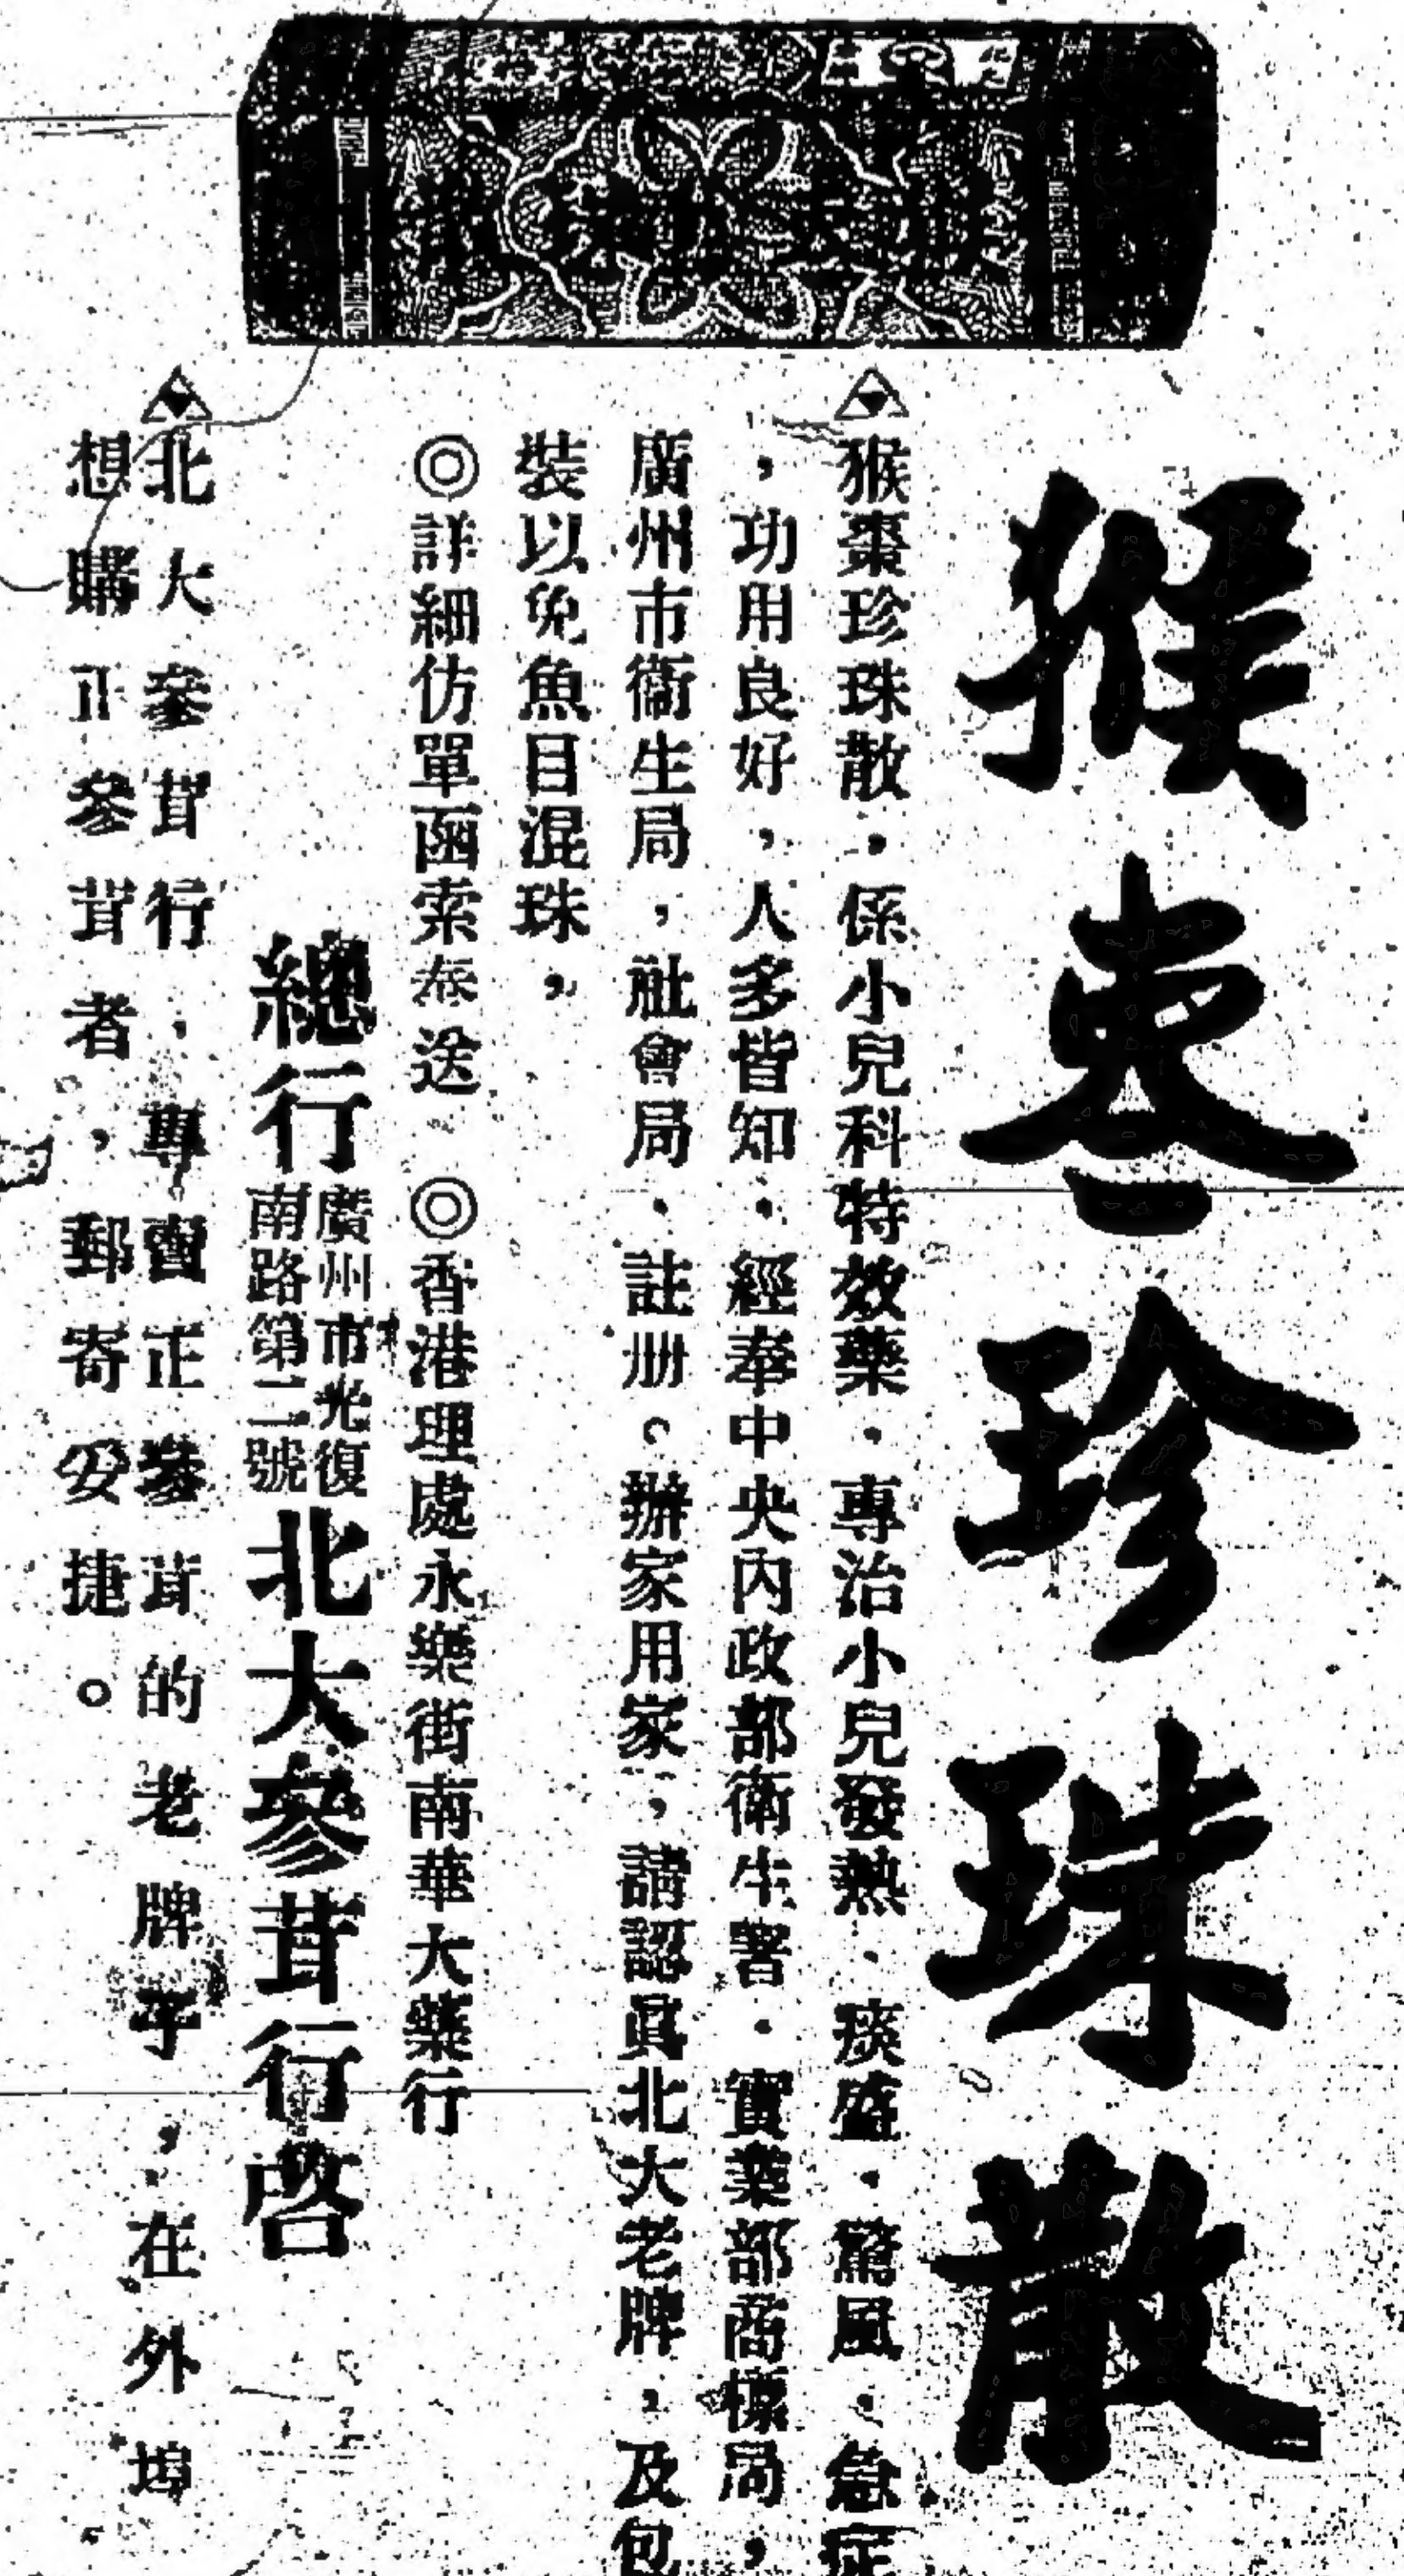 猴枣珍珠散
猴棗珍珠散，係小兒科特效藥．專治小兒發熱．痰盛．驚風．急症
，功用良好，人多皆知．經奉中央內政部衛生署．實業部商標局，
廣州市衞生局，社會局．註册。辦家用家，請認眞北大老牌．及包
裝以免魚目混珠，
◎詳細仿單函索奉送 ◎香港理處永樂街南華大藥行
總行廣州市光復南路第二號北大參茸行啓
北大參茸行．專賣正參茸的老牌子，在外埠．
想購正參茸者，郵寄妥捷。